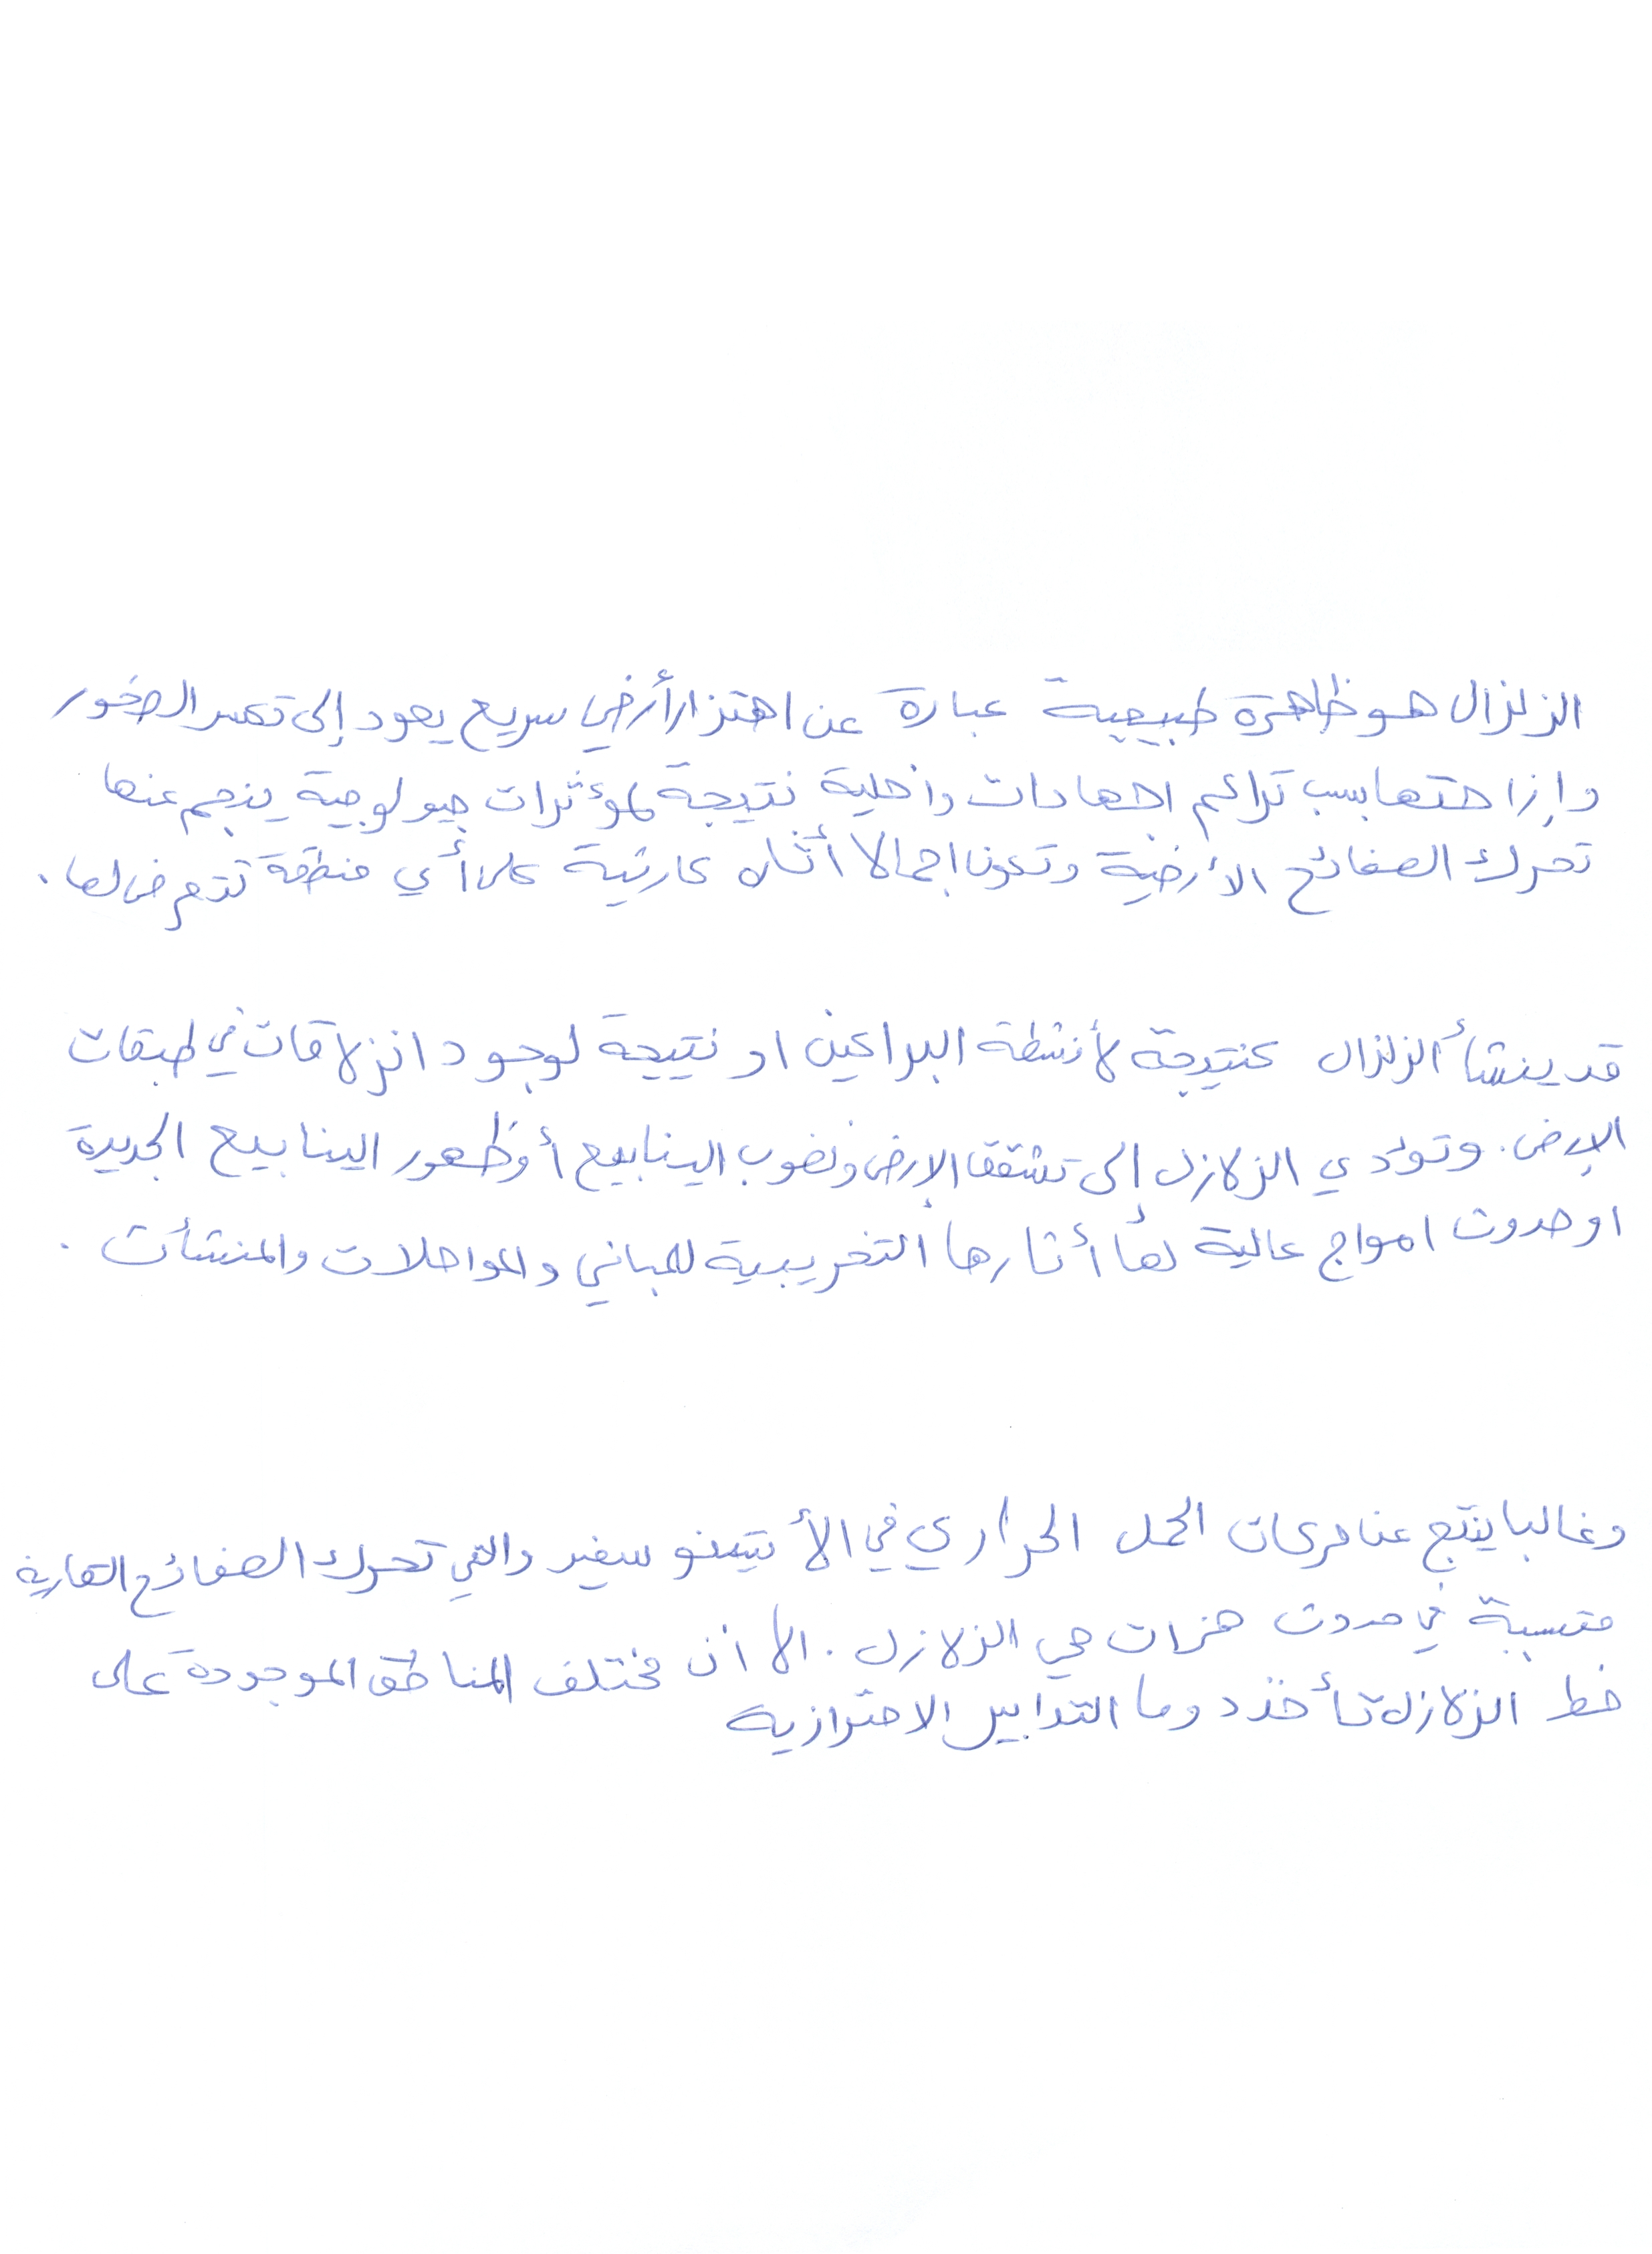 الزلزال هو ظاهرة طبيعية عبارة عن اهتزاز أرضي سريع يعود إلى تكسر الصخور
وإزاحتها بسبب تراكم اجهادات داخلية نتيجة لمؤثرات جيولوجية ينجم عنها
تحرك الصفائح الأرضية وتكون اجمالا أثاره كارثية على أي منطقة تتعرض لها .
قد ينشأ الزلزال كنتيجة لأنشطة البراكين او نتيجة لوجود انزلاقات في طبقات
الارض . وتؤدي الزلازل إلى تشقق الارض ونضوب الينابيع أو ظهور الينابيع الجديدة
او حدوث امواج عالية لها أثارها التخريبية للمباني والمواصلات والمنشآت .
وغالبا ينتج عن حركات الحمل الحراري في الأثينوسفير والتي تحرك الصفائح القارية
متسببة في حدوث هزات هي الزلازل . الا أن مختلف المناطق الموجودة على
خط الزلازل تأخذ دوما التدابير الاحترازية